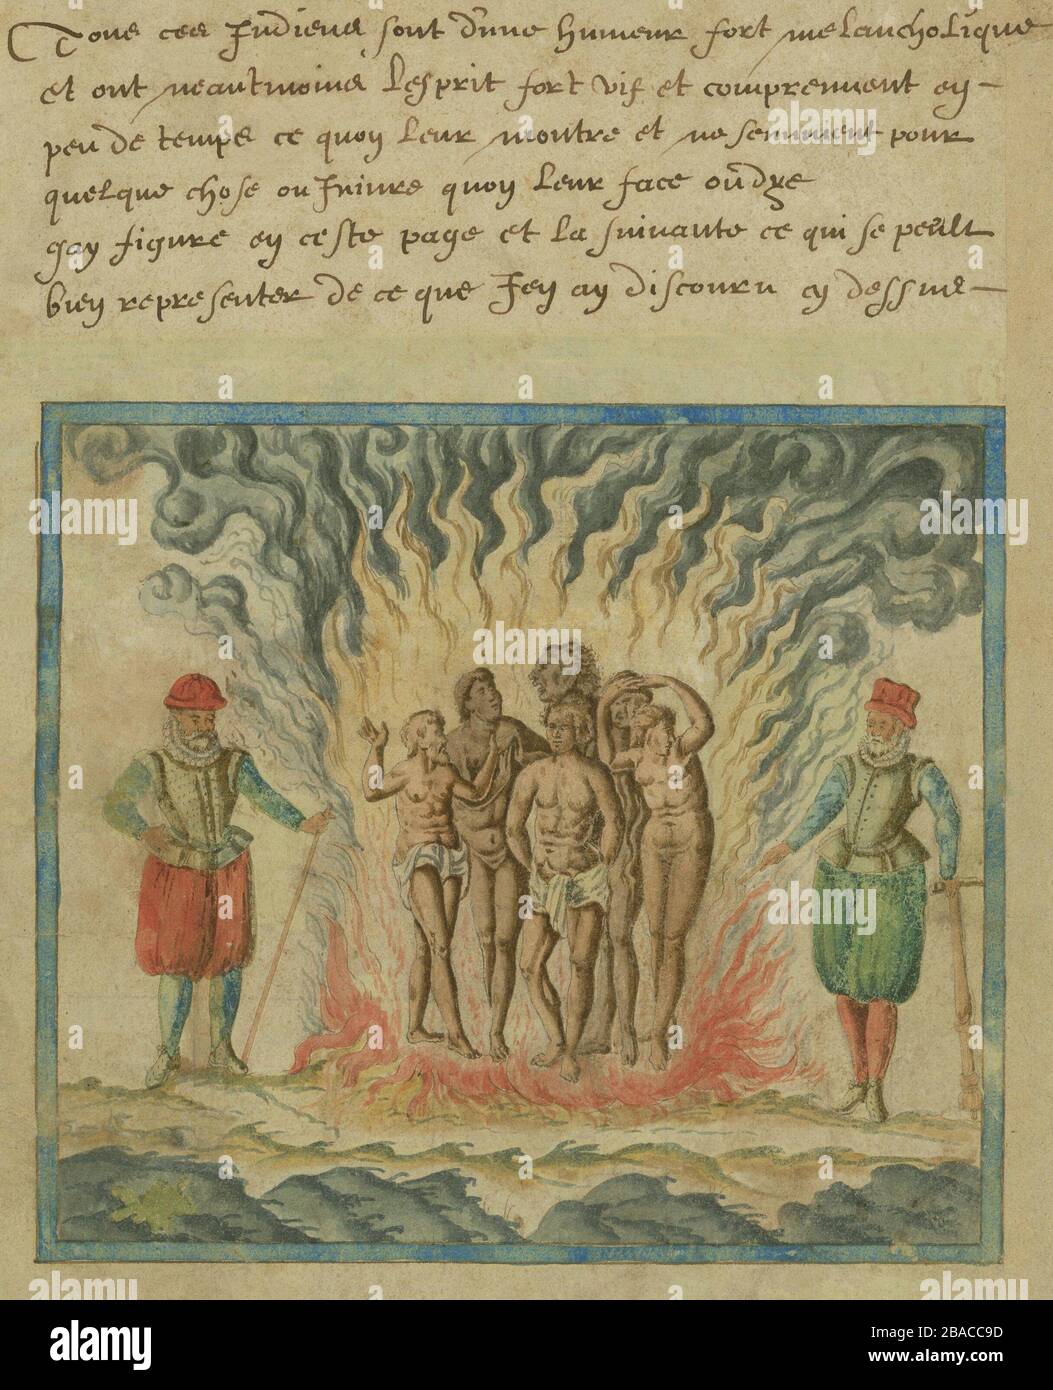 Tous ces Indiens sont d'une humeur fort melancholique
et ont neantmoins lesprit fort vif et comprennent en
peu de temps ce quon leur montre et ne sennuient pour
quelque chose ou Iniure quon leur face oudre
Jay figure en ceste page et la suivante ce qui se peult
bien representer de ce que Jen ay discouru cy dessus
alamy
Image ID: 2BACC9D
www.alamy.com